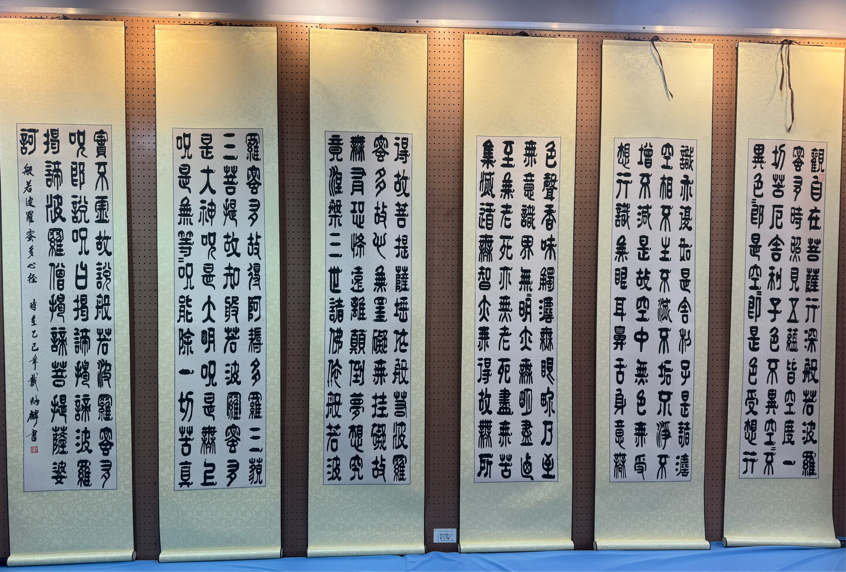 觀自在菩薩行深般若波羅
蜜多時照見五蘊皆空度一
切苦厄舍利子色不異空〻不
異色〻即是空〻即是色受想行
識亦復如是舍利子是諸灋
空相不生不滅不垢不淨不
增不減是故空中無色無受
想行識無眼耳鼻舌身意無
色聲香味觸灋無眼界乃至
無意識界無〻明亦無明盡乃
至無老死亦無老死盡無苦
集滅道無智亦無得故無所
得故菩提薩埵依般若波羅
蜜多故心無罣礙無挂礙故
無有恐怖遠離顛倒夢想究
竟涅槃三世諸佛依般若波
羅蜜多故得阿耨多羅三藐
三菩提故知般若波羅蜜多
是大神咒是大明咒是無上
咒是無等〻咒能除一切苦真
實不虛故說般若波羅蜜多
咒即說咒曰揭諦揭諦波羅
揭諦波羅僧揭諦菩提薩婆
訶 般若波羅蜜多心經 時在乙巳年戴炳麟書